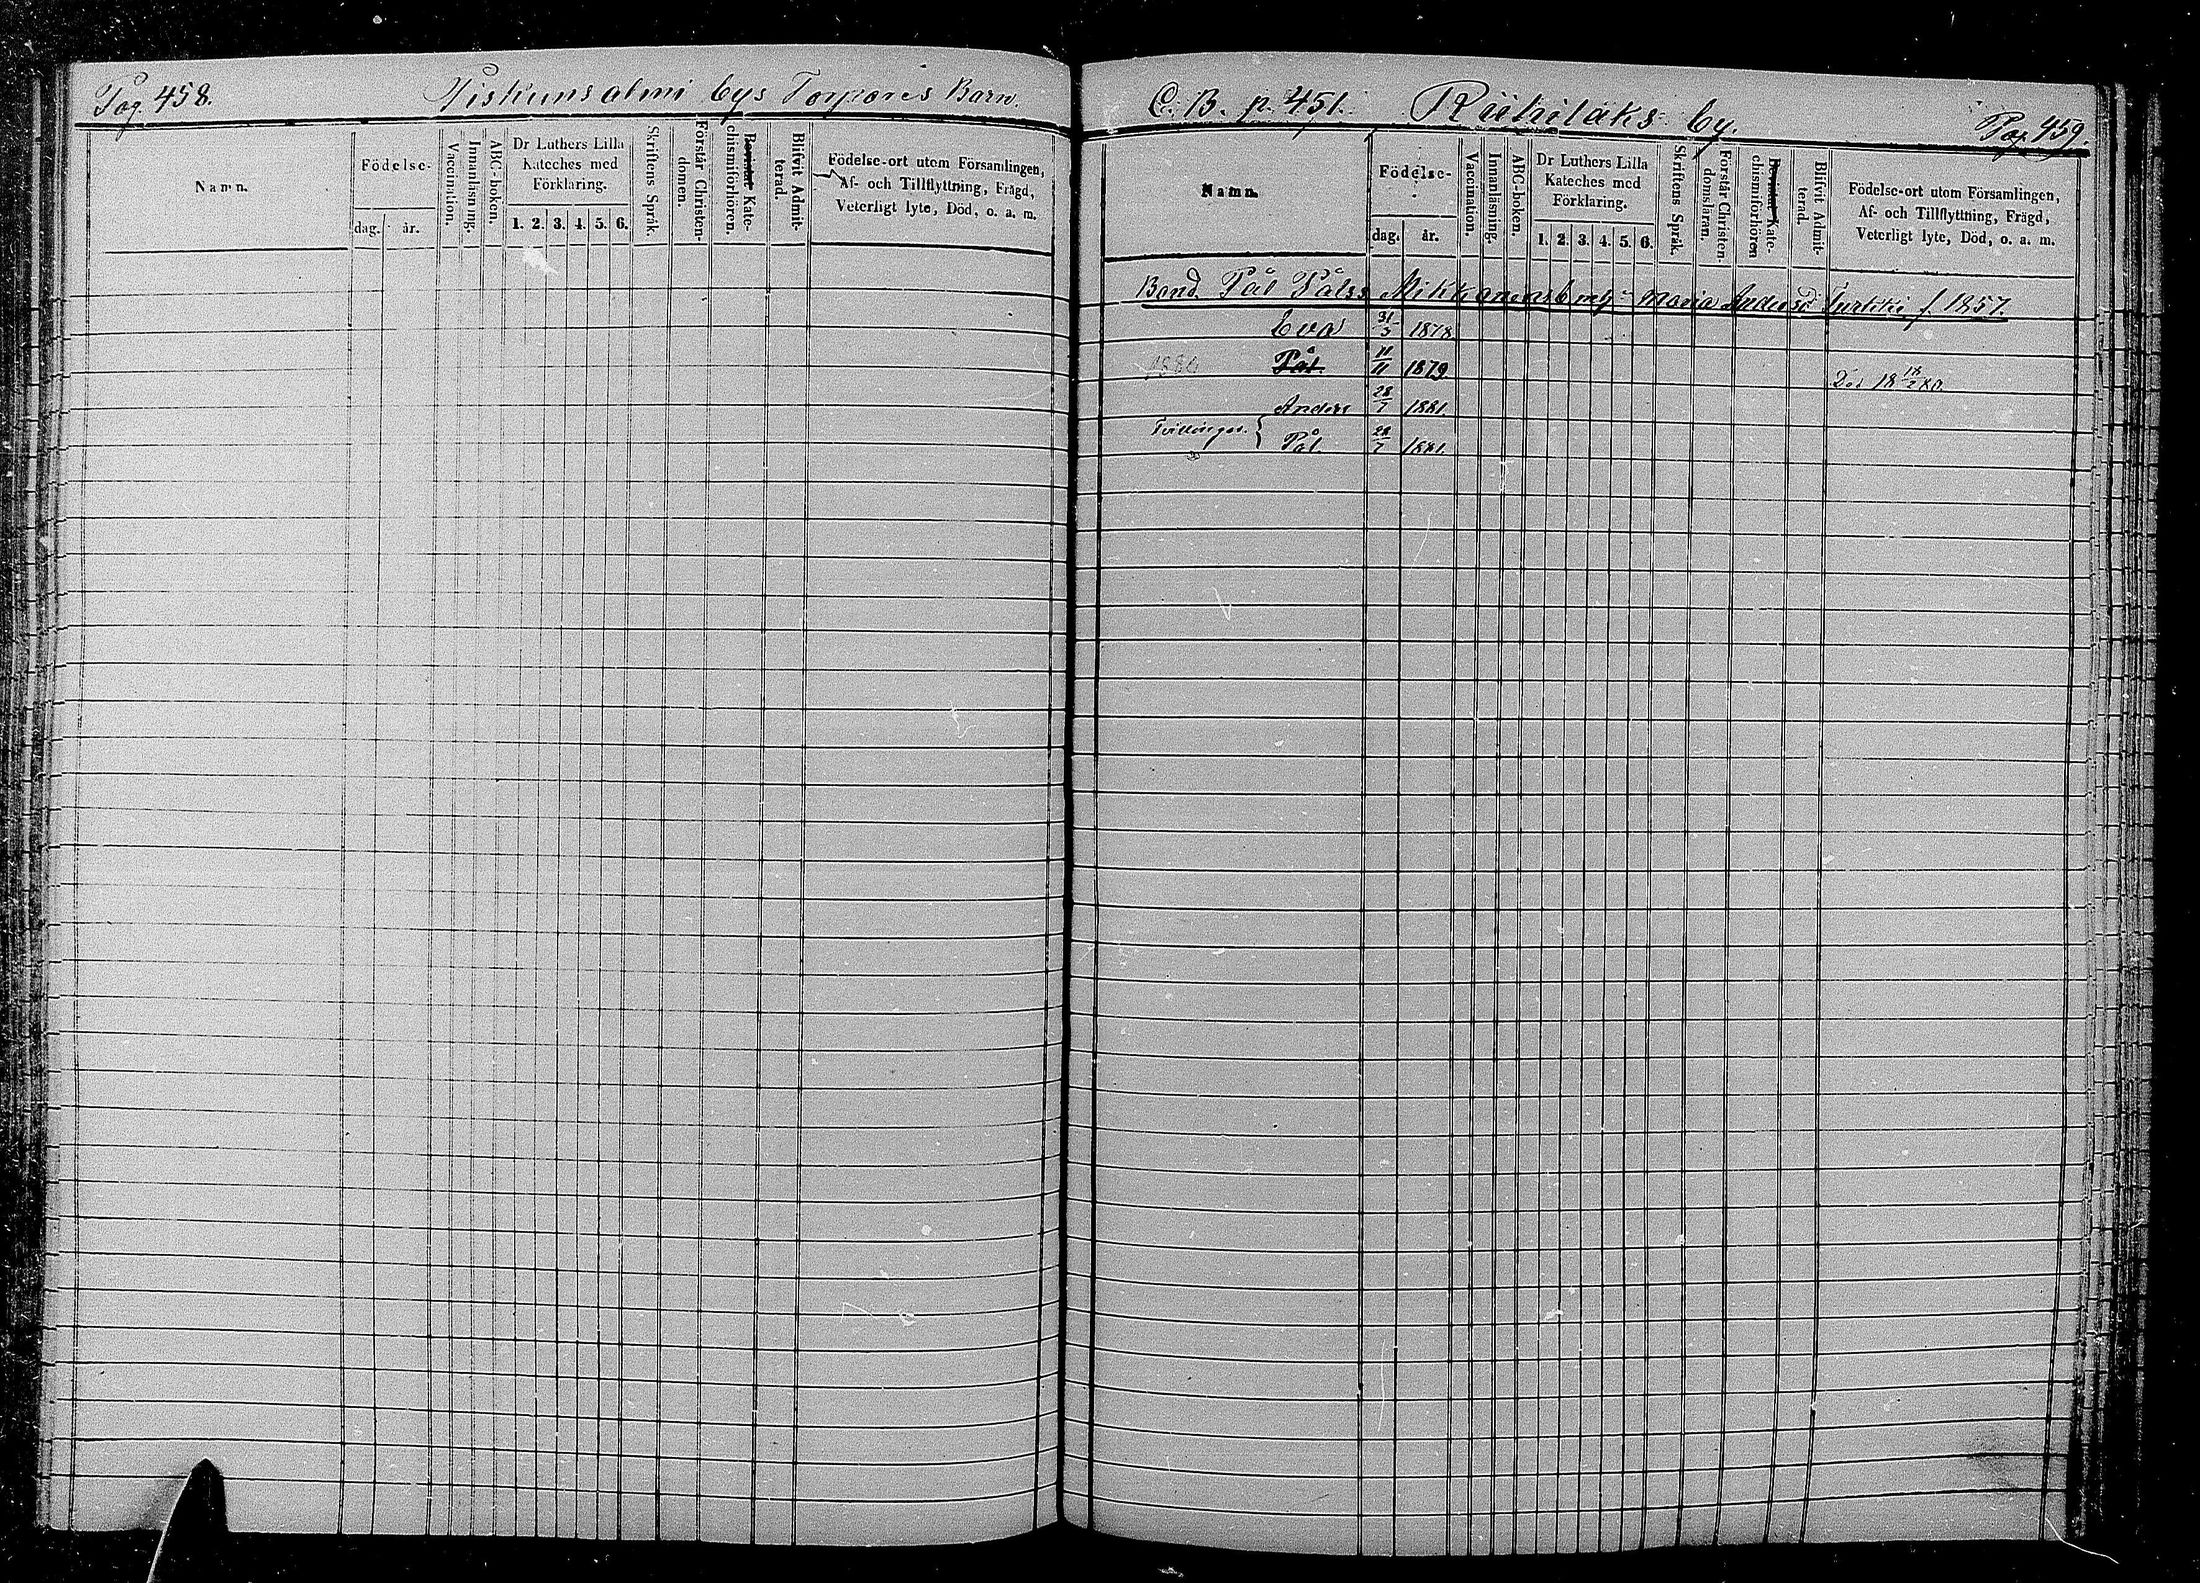 Pag. 458. Piskunsalmi bys Torpares Barn.
Namn.
Födelse-
dag. år.
Vaccination.
Innanläsning.
ABC-boken.
Dr Luthers Lilla
Kateches med
Förklaring.
1. 2. 3. 4. 5. 6.
Skriftens Språk.
Förstår Christen-
domen.
Bevistat Kate-
chismiförhören.
Blifvit Admit-
terad.
Födelse-ort utom Församlingen,
Af- och Tillflyttning, Frägd,
Veterligt lyte, Död, o. a. m.
C. B. p. 451. Riihilaks by. Pag. 459.
Namn.
Födelse-
dag. år.
Vaccination.
Innanläsning.
ABC-boken.
Dr Luthers Lilla
Kateches med
Förklaring.
1. 2. 3. 4. 5. 6.
Skriftens Språk.
Förstår Christen-
domsläran.
Bevistat Kate-
chismiförhören
Blifvit Admit-
terad.
Födelse-ort utom Församlingen,
Af- och Tillflyttning, Frägd,
Veterligt lyte, Död, o. a. m.
Bond. Pål Pålss. Mikkonens Maria Andersd. f. 1857.
Eva 31/5 1878.
Pål. 11/11 1879.
Anders 28/7 1881.
Tvillingar. { Pål. 28/7 1881.